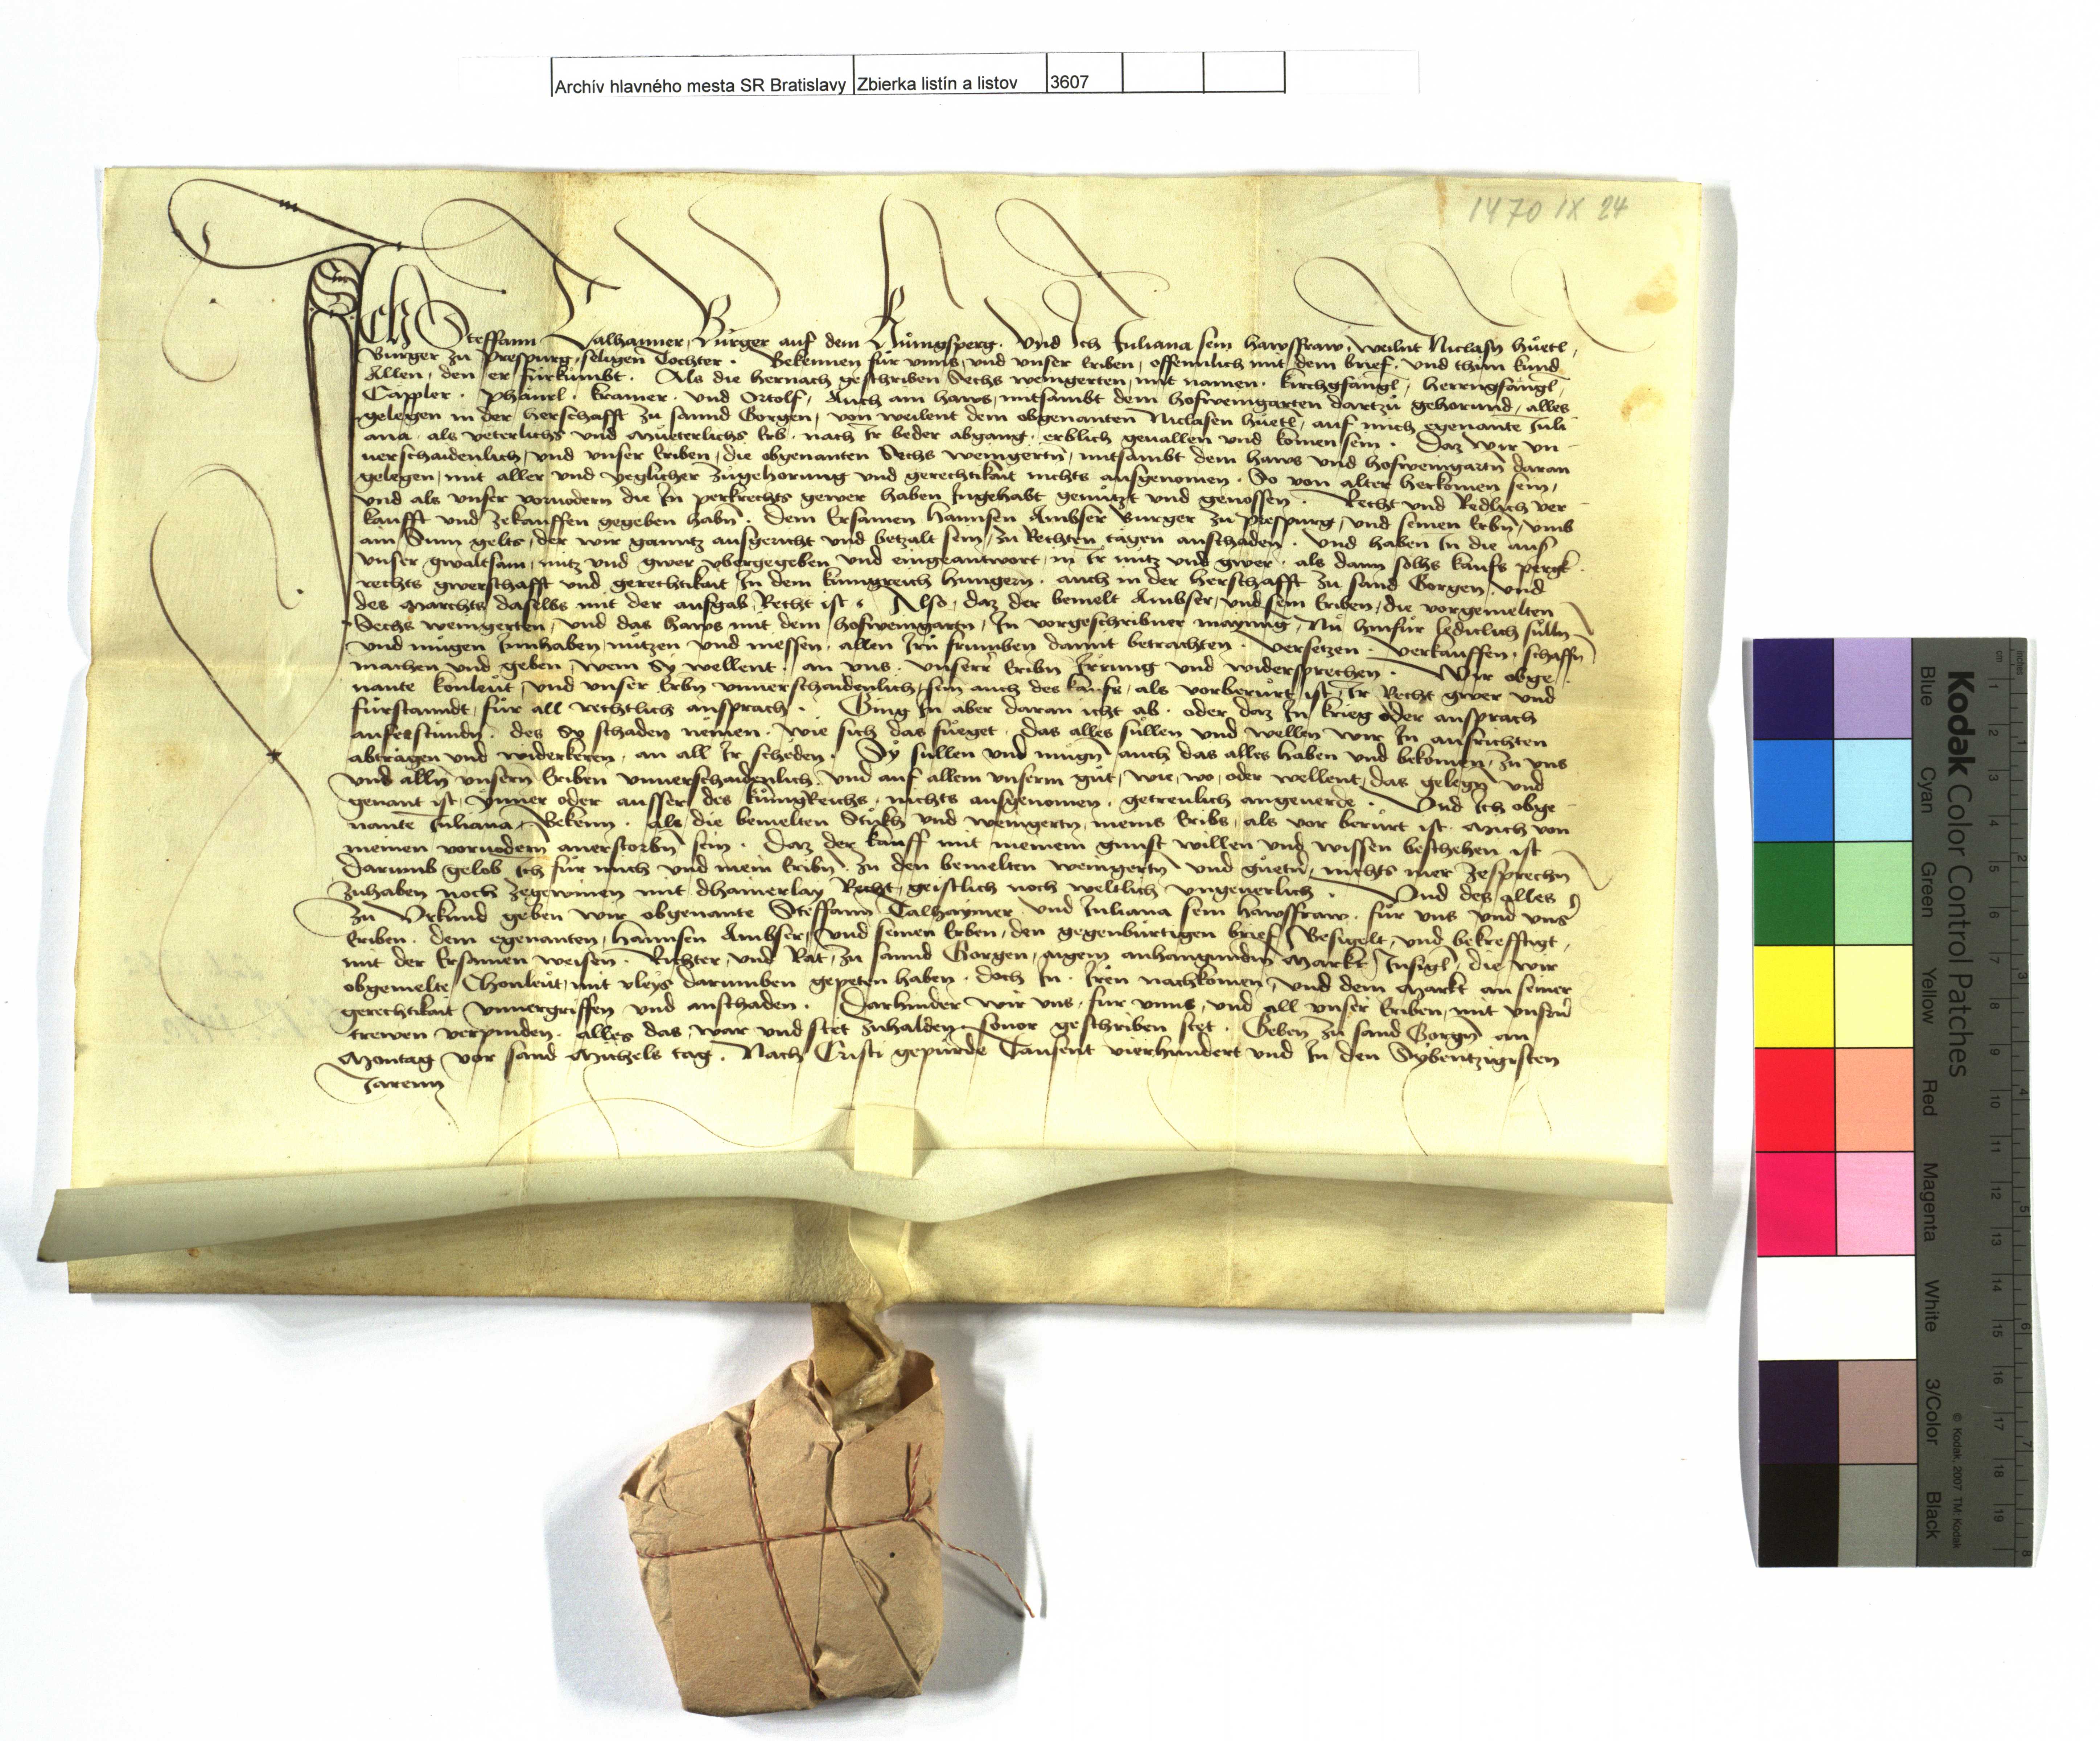 Archív hlavného mesta SR Bratislavy Zbierka listín a listov 3607
1470 IX 24
Ich Steffann Talhaimer, Burger auf dem Kuͤnigsperg. Und Ich Juliana sein hawsffraw, weilnt Niclasn huͤetl,
Burger zu Prespurg, seligen Tochter. Bekennen fuͤr vnns, vnd vnser Eriben, offennlich mit dem brief. vnd thun kund
Allen, den er fuͤrkumbt. Als die hernach geschriben Sechs weingerten, mit namen. kirchgsangl, herrngsangl,
Cappler. phanrl. kramer. vnd Ortolf, Auch ain haws, mitsambt dem hofweingarten dartzu gehorund, alles
gelegen in der herschafft zu sannd Gorgen, von weilent dem obgenanten Niclasen huͤetl, auf mich egenante Juli
ana. als veterlichs vnd Mueterlichs Erb. nach Ir beder abgang. erblich geuallen vnd komen sein. Daz wir vn
uerschaidenlich, vnd vnser Eriben, die obgenanten Sechs weingertn, mitsambt dem haws vnd hofweingartn daran
gelegen, mit aller vnd yeglicher zugehorung vnd gerechtikait nichts ausgenomen. So von alter herkomen sein,
vnd als vnser voruodern die In perkrechts gewer haben Ingehabt genutzt vnd genossen. Recht vnd Redlich ver
kaufft vnd zekauffen gegeben habn. Dem Ersamen hannsen Ambser Burger zu Prespurg, vnd seinen Erbn, vmb
ain Sum gelts, der wir ganntz ausgericht vnd betzalt sein, zu Rechten tagen anschaden. vnd haben In die aus
vnser gwaltsam, nutz vnd gwer vbergegeben vnd eingeantwort, in Ir nutz vnd gwer. als dann solhs kaufs pergk
rechts gwerschafft vnd gerechtikait In dem kunigreich hungern. auch in der herschafft zu sand Gorgen, vnd
des Marchts daselbs mit der ausgab, Recht ist. Also, daz der bemelt Ambser, vnd sein Eriben, die vorgemelten
Sechs weingerten, vnd das haws mit dem hofweingartn, In vorgeschribner maynung, Nu hinfur lediclich sulln
vnd mugen Innhaben, nutzen vnd niessen, allen Irn frumben damit betrachten. versetzen. verkauffen, schaffn
machen vnd geben, wem Sy wellent. an vns. vnserr Eribn Irrung vnd widersprechen. Wir obge
nante konleut, vnd vnser Erbn vnuerschaidenlich, sein auch des kaufs, als vorberurt ist, Ir Recht gwer vnd
furstanndt, fur all rechtlich ansprach. Ging In aber daran icht ab. oder daz In krieg oder ansprach
auferstundn. des Sy schaden nemen. wie sich das fueget. das alles sullen vnd wellen wir In ausrichten
abtragen vnd widerkeren, an all Ir scheden. Sy sullen vnd mugn auch das alles haben vnd bekomen, zu vns
vnd alln vnsern Eriben vnuerschaidenlich, vnd auf allem vnserm gut, wie, wo, oder wellent, das gelegn vnd
genant ist, ynner oder ausser des kunigReichs, nichts ausgenomen, getreulich angeuerde. Vnd Ich obge
nante Juliana, Bekenn. als die bemelten Stukh vnd weingertn, meins Eribs, als vor berurt ist. Mich von
meinen voruodern anerstorbn sein. Daz der kauff mit meinem gunst willen vnd wissen beschehen ist
Darumb gelob Ich fur mich vnd mein Eribn. zu den bemelten weingertn vnd guetern, nichts mer zesprechn
zuhaben noch zegewinen mit dhainerlay Recht, geistlich noch weltlich vngeuerlich. Vnd des alles
zu Vrkund geben wir obgenante Steffann Talhaymer vnd Juliana sein hawsffraw. fur vns vnd vnser
Eriben. dem egenanten, hannsen Ambser, vnd seinen Erben, den gegenburtigen brief, Besigelt, vnd bekrefftigt,
mit der Ersamen weisen. Richter, vnd Rat, zu sannd Gorgen, aigem anhangundm Markt Insigl, die wir
obgemelte Chonleut, mit vleys darumben gepeten haben. doch In. Iren nachkomen, vnd dem Markt an seiner
gerechtikait vnuergriffen vnd anschaden. Darhinder wir vns, fur vnns, vnd all vnser Eriben, mit vnsern
trewen verpinden. alles das, war vnd stet zuhalden, souor geschriben stet. Geben zu sand Gorgn an
Montag vor sand Michels tag. Nach Cristi gepurde Tausent vierhundert vnd In den Sybentzigisten
Jarenn
Kodak Color Control Patches
Blue Cyan Green Yellow Red Magenta White 3/Color Black
© Kodak, 2007 TM: Kodak
cm 1 2 3 4 5 6 7 8 9 10 11 12 13 14 15 16 17 18 19
inches 1 2 3 4 5 6 7 8